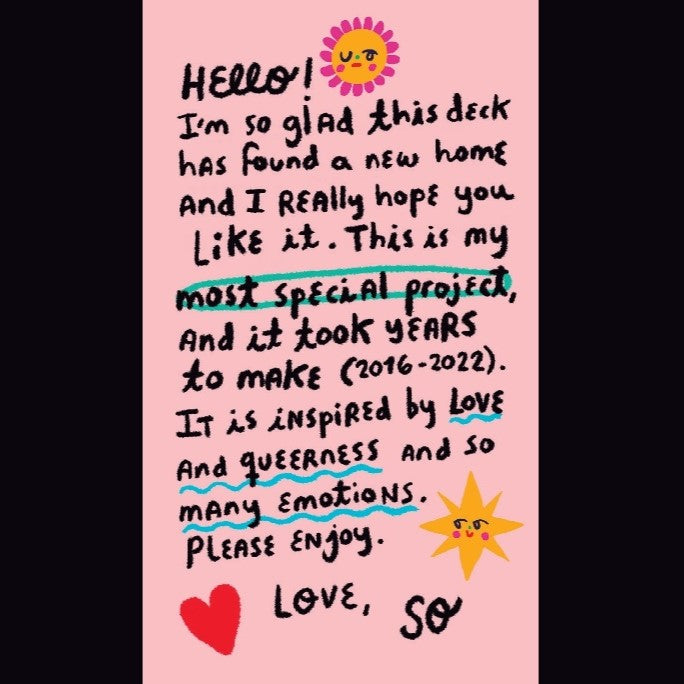 Hello!
I'm so glad this deck
has found a new home
and I really hope you
like it. This is my
most special project,
and it took years
to make (2016-2022).
It is inspired by love
and queerness and so
many emotions.
Please enjoy.
Love, So